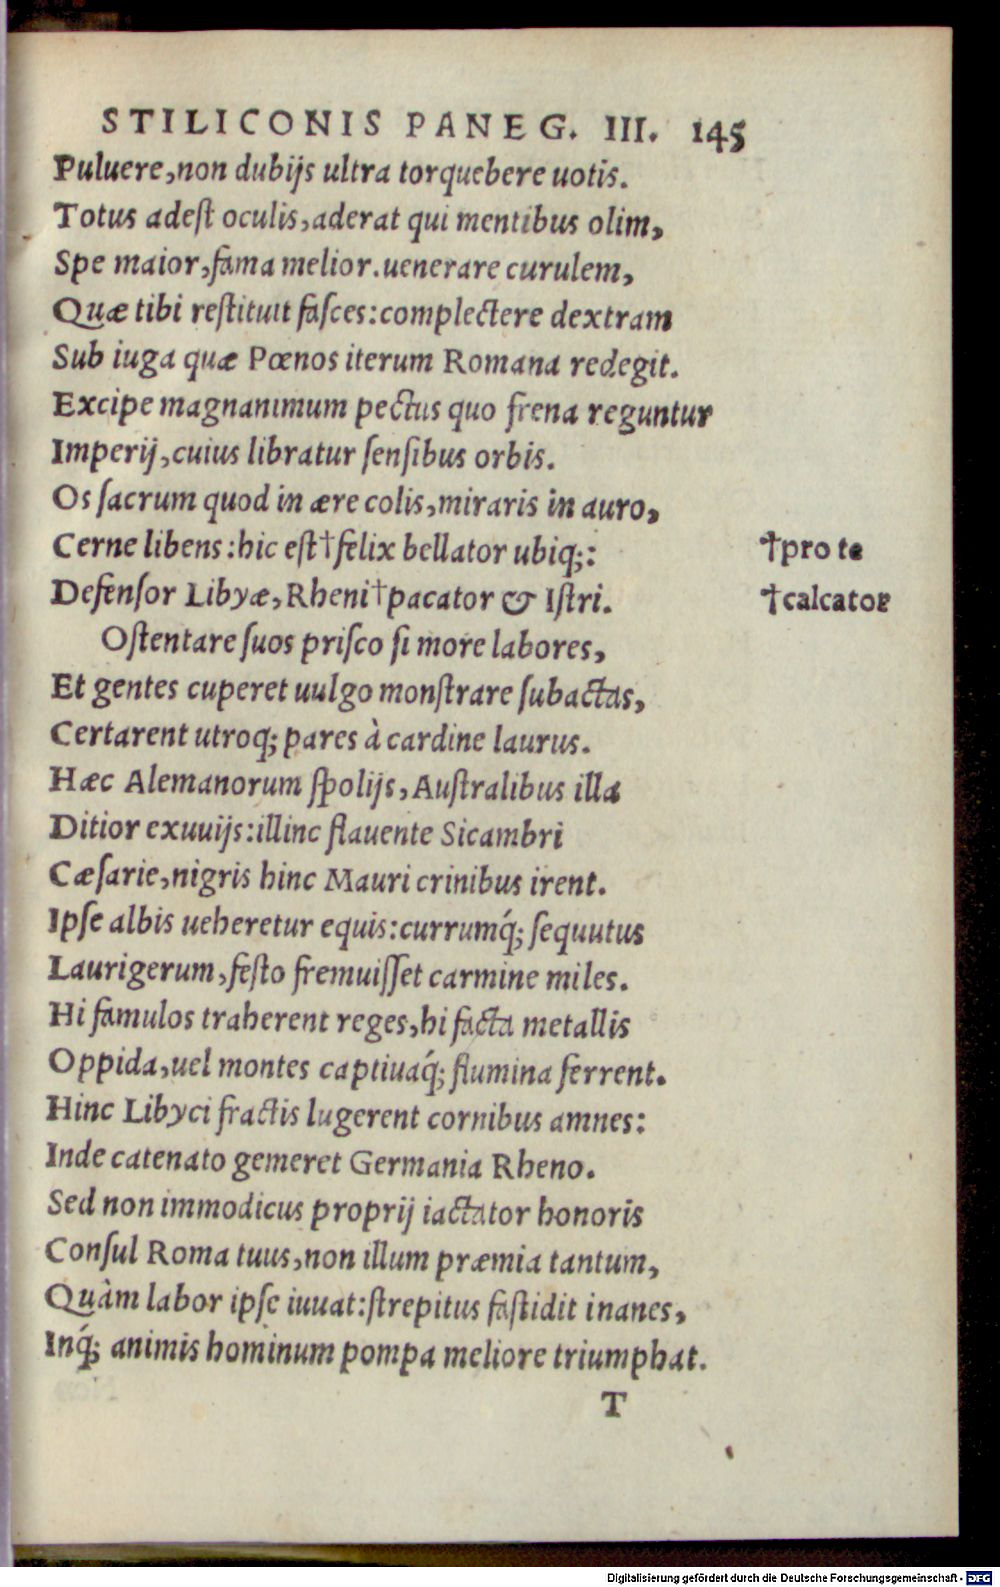 STILICONIS PANEG. III. 145
Puluere,non dubijs ultra torquebere uotis.
Totus adeſt oculis,aderat qui mentibus olim,
Spe maior,fama melior.uenerare curulem,
Quæ tibi reſtituit faſces:complectere dextram
Sub iuga quæ Pœnos iterum Romana redegit.
Excipe magnanimum pectus quo frena reguntur
Imperij,cuius libratur ſenſibus orbis.
Os ſacrum quod in ære colis,miraris in auro,
Cerne libens:hic eſt†felix bellator ubiq;: †pro te
Defenſor Libyæ,Rheni†pacator & Iſtri. †calcator
Oſtentare ſuos priſco ſi more labores,
Et gentes cuperet uulgo monſtrare ſubactas,
Certarent utroq; pares à cardine laurus.
Hæc Alemanorum ſpolijs,Auſtralibus illa
Ditior exuuijs:illinc flauente Sicambri
Cæſarie,nigris hinc Mauri crinibus irent.
Ipſe albis ueheretur equis:currumq́; ſequutus
Laurigerum,feſto fremuiſſet carmine miles.
Hi famulos traherent reges,hi facta metallis
Oppida,uel montes captiuaq́; flumina ferrent.
Hinc Libyci fractis lugerent cornibus amnes:
Inde catenato gemeret Germania Rheno.
Sed non immodicus proprij iactator honoris
Conſul Roma tuus,non illum præmia tantum,
Quàm labor ipſe iuuat:ſtrepitus faſtidit inanes,
Inq́; animis hominum pompa meliore triumphat.
T
Digitalisierung gefördert durch die Deutsche Forschungsgemeinschaft - DFG